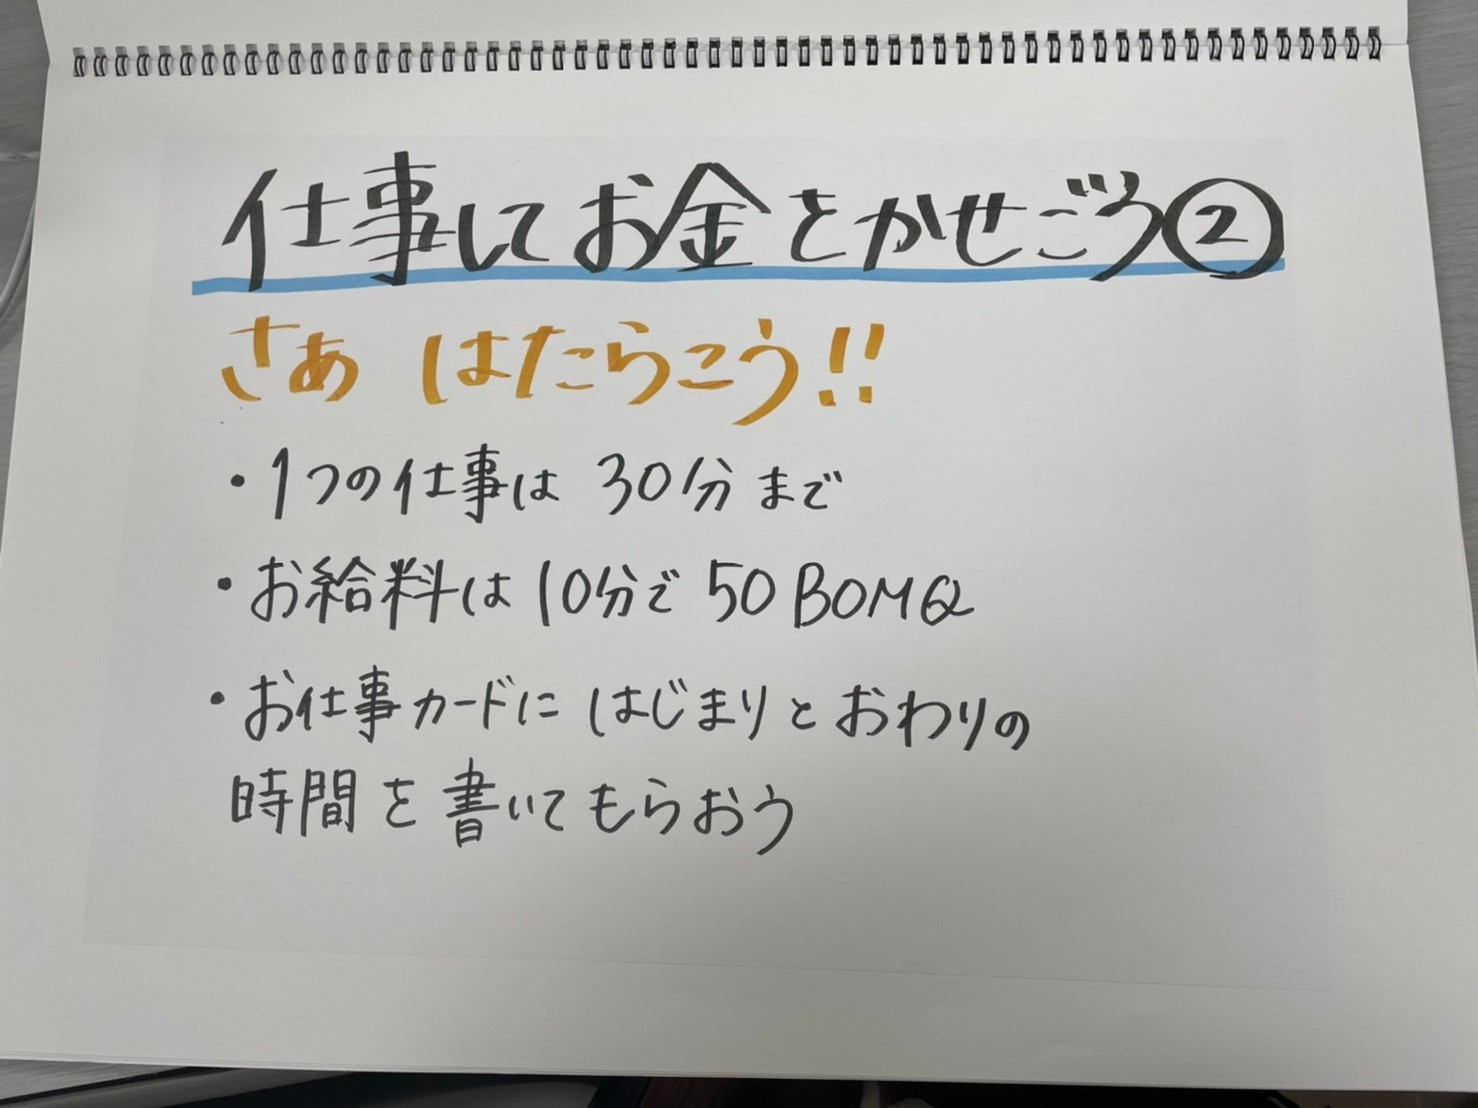 仕事してお金をかせごう②
さあ はたらこう!!
・1つの仕事は 30分まで
・お給料は 10分で 50 BOMQ
・お仕事カードに はじまりとおわりの
時間を書いてもらおう